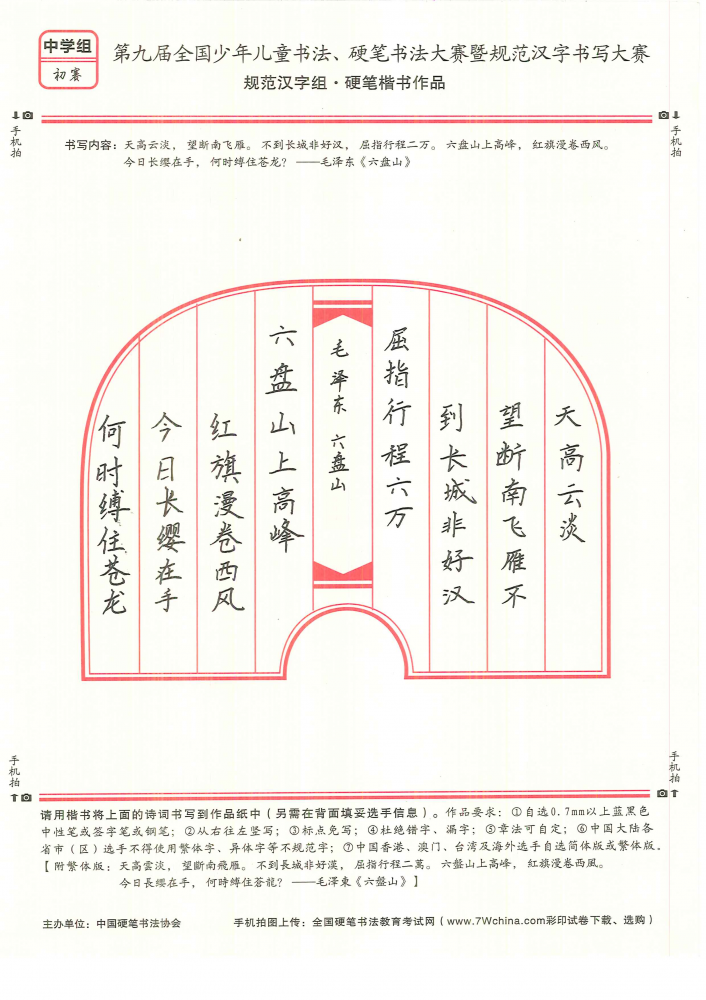 中学组
初赛
第九届全国少年儿童书法、硬笔书法大赛暨规范汉字书写大赛
规范汉字组·硬笔楷书作品
手机拍
手机拍
书写内容：天高云淡，望断南飞雁。不到长城非好汉，屈指行程二万。六盘山上高峰，红旗漫卷西风。
今日长缨在手，何时缚住苍龙？——毛泽东《六盘山》
天高云淡
望断南飞雁不
到长城非好汉
屈指行程六万
毛泽东 六盘山
六盘山上高峰
红旗漫卷西风
今日长缨在手
何时缚住苍龙
手机拍
手机拍
请用楷书将上面的诗词书写到作品纸中（另需在背面填妥选手信息）。作品要求：①自选0.7mm以上蓝黑色
中性笔或签字笔或钢笔；②从右往左竖写；③标点免写；④杜绝错字、漏字；⑤章法可自定；⑥中国大陆各
省市（区）选手不得使用繁体字、异体字等不规范字；⑦中国香港、澳门、台湾及海外选手自选简体版或繁体版。
【附繁体版：天高雲淡，望斷南飛雁。不到長城非好漢，屈指行程二萬。六盤山上高峰，紅旗漫卷西風。
今日長纓在手，何時縛住蒼龍？——毛澤東《六盤山》】
主办单位：中国硬笔书法协会
手机拍图上传：全国硬笔书法教育考试网（www.7Wchina.com彩印试卷下载、选购）